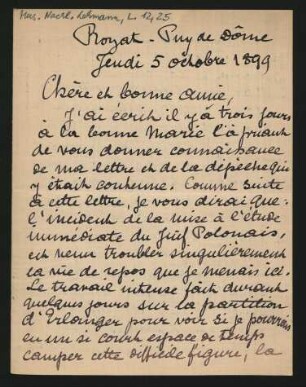 Mus. Nachl. Lehmann, L. 12,25
Royat - Puy de Dôme
Jeudi 5 octobre 1899
Chère et bonne amie,
J'ai écrit il y a trois jours
à la bonne Marie l'à priant
de vous donner connaissance
de ma lettre et de la dépêche qui
y était contenue. Comme suite
à cette lettre, je vous dirai que
l'incident de la mise à l'étude
immédiate du Juif Polonais,
est venu troubler singulièrement
la vie de repos que je menais ici.
Le travail intense fait durant
quelques jours sur la partition
d'Erlanger pour voir si je pourrais
en un si court espace de temps
camper cette difficile figure, la